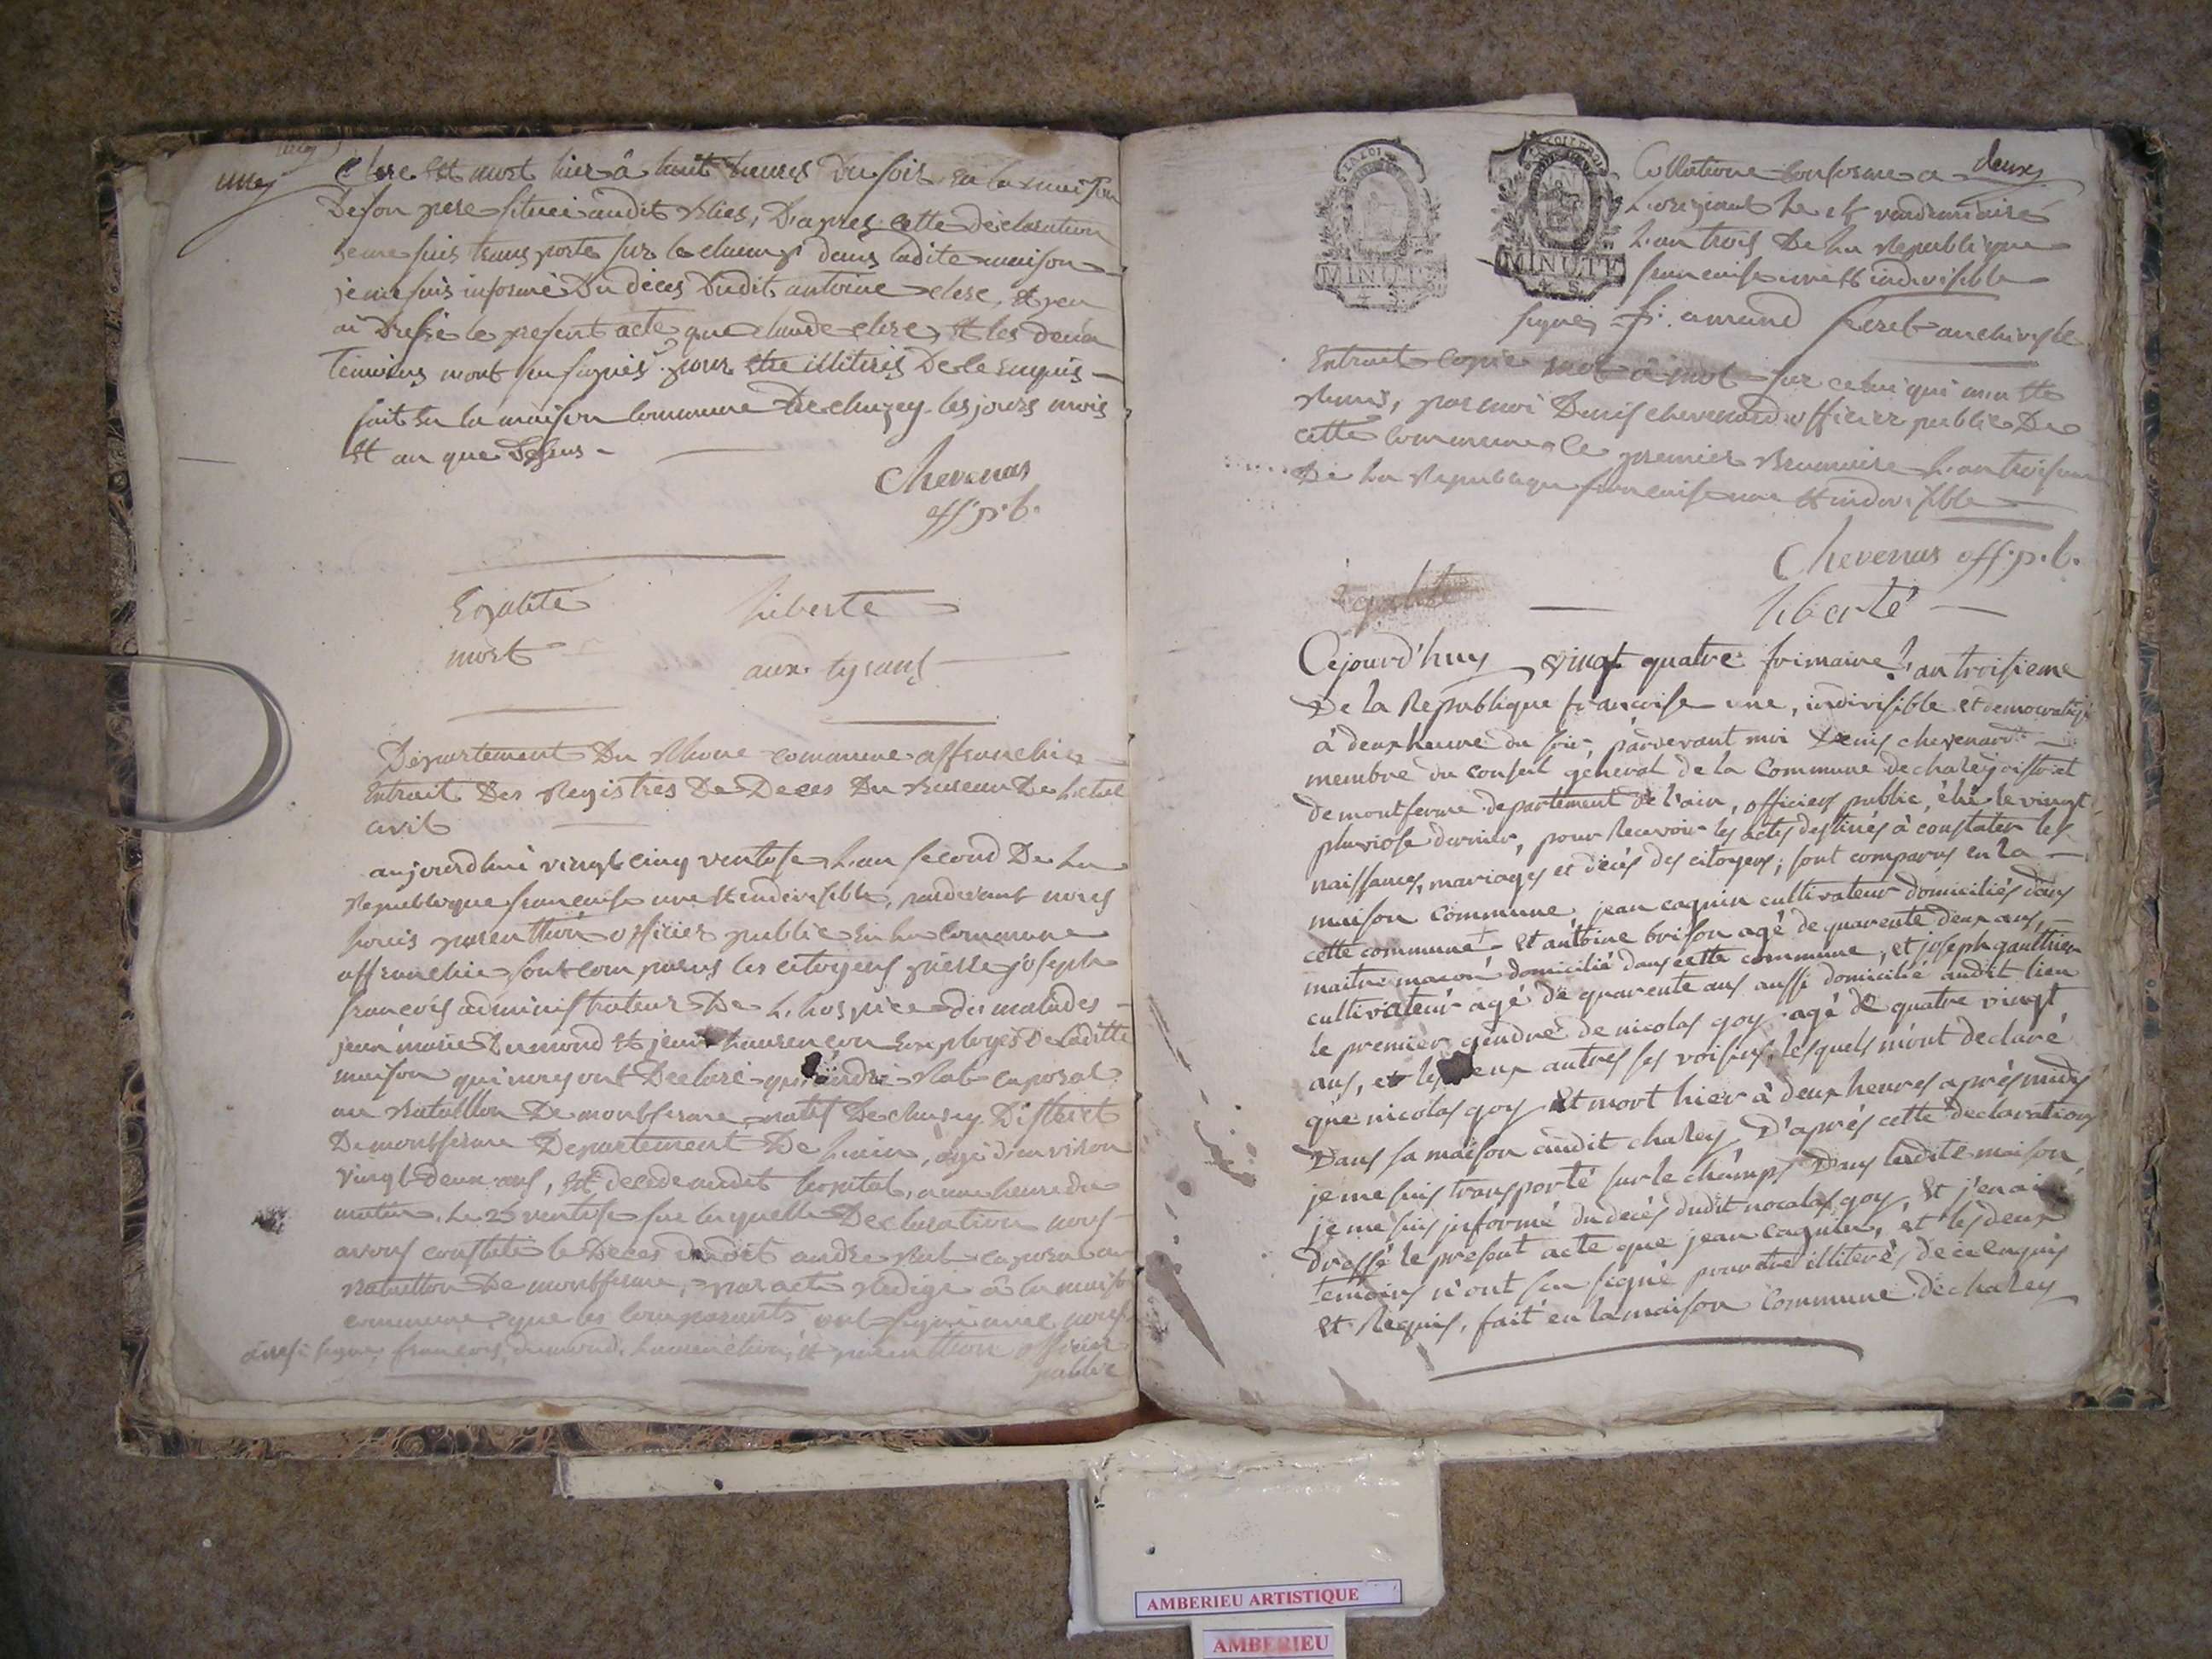 une
Clerc Est mort hier â huit heures Du soir En la maison
De son pere situeé audit Blies, D'apres cette déclaration
je me suis transporté sur le champ dans ladite maison
je me suis informé Du déces Dudit antoine clerc, Et j'en
ai Dressé le present acte que claude clerc, Et les deux
temoins n'ont su signés pour être illiterés De ce Enquis
fait En la maison Commune De chazey les jours mois
Et an que Dessus
Chevenas
off. p. b.
Egalité Liberté
mort aux tyrans
Département Du Rhone commune affranchie
Extrait Des Registres De Déces Du Bureau De Letat
civil
aujourdhui vingt cinq ventose L'an second De La
Republique francaise une Et indivisible, pardevant nous
officier public En La Commune
affranchie sont comparus les citoyens pierre joseph
francois administrateur De L'hospice des malades
jean marie Dumond Et jean Employés De laditte
maison qui nous ont Declaré andré Rat caporal
au Bataillon De montferme natif De chazey District
De montferme Departement De L'ain, agé d'environ
vingt deux ans, Est décédé audit hopital, a une heure du
matin, Le 25 ventose sur laquelle Déclaration nous
avons constaté le Déces dudit andre Rat caporal au
Bataillon De montferme, par acte Redigé â la maison
commune que les Comparants ont signé avec nous
ainsi signé, francois, dumond, Et officier
public
deux
Collationé Conforme a
L'original Le 15 vendemiaire
L'an trois De La Republique
francaise une Et indivisible
MINUTE
4. S.
MINUTE
4. S.
signés amand archiviste
Extrait Copié mot â mot sur celui qui m'a Eté
Remis, par moi Denis chevenard officier public De
cette Commune Le premier Brumaire L'an troisieme
De La Republique francaise une Et indivisible
Chevenas off. p. b.
égalité liberté
Cejourd'huy vingt quatre frimaire l'an troisieme
De la Republique francaise une, indivisible et democratique
à deux heure du soir, pardevant moi Denis chevenard
membre du conseil géneral de la Commune de chazey district
de montferme departement de l'ain, officier public, élu le vingt
pluviose dernier, pour Recevoir les actes destinés à constater les
naissances, mariages et décés des citoyens; sont comparus en la
maison commune, jean cagnin cultivateur domiciliés dans
cette commune Et antoine brison agé de quarente deux ans,
maitre macon domicilié dans cette commune, et joseph gauthier
cultivateur agé de quarente ans aussi domicilié audit lieu
le premier gendre de nicolas goy agé de quatre vingt
ans, et les deux autres ses voisins, lesquels m'ont declaré
que nicolas goy Est mort hier à deux heures aprés midy
Dans sa maison audit chazey D'aprés cette declaration
je me suis transporté sur le champs Dans ladite maison
je me suis informé du decés dudit nocolas goy Et j'en ai
Dressé le present acte que jean cagnin, et les deux
temoins n'ont su signé pour etre illiterés, de ce enquis
Et Requis, fait en la maison Commune de chazey
AMBERIEU ARTISTIQUE
AMBERIEU